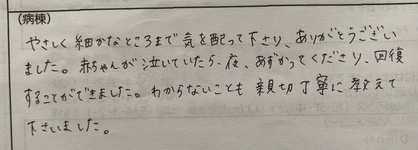 (病棟)
やさしく細かなところまで気を配って下さり、ありがとうござい
ました。赤ちゃんが泣いていたら夜、あずかってくださり、回復
することができました。わからないことも親切丁寧に教えて
下さいました。